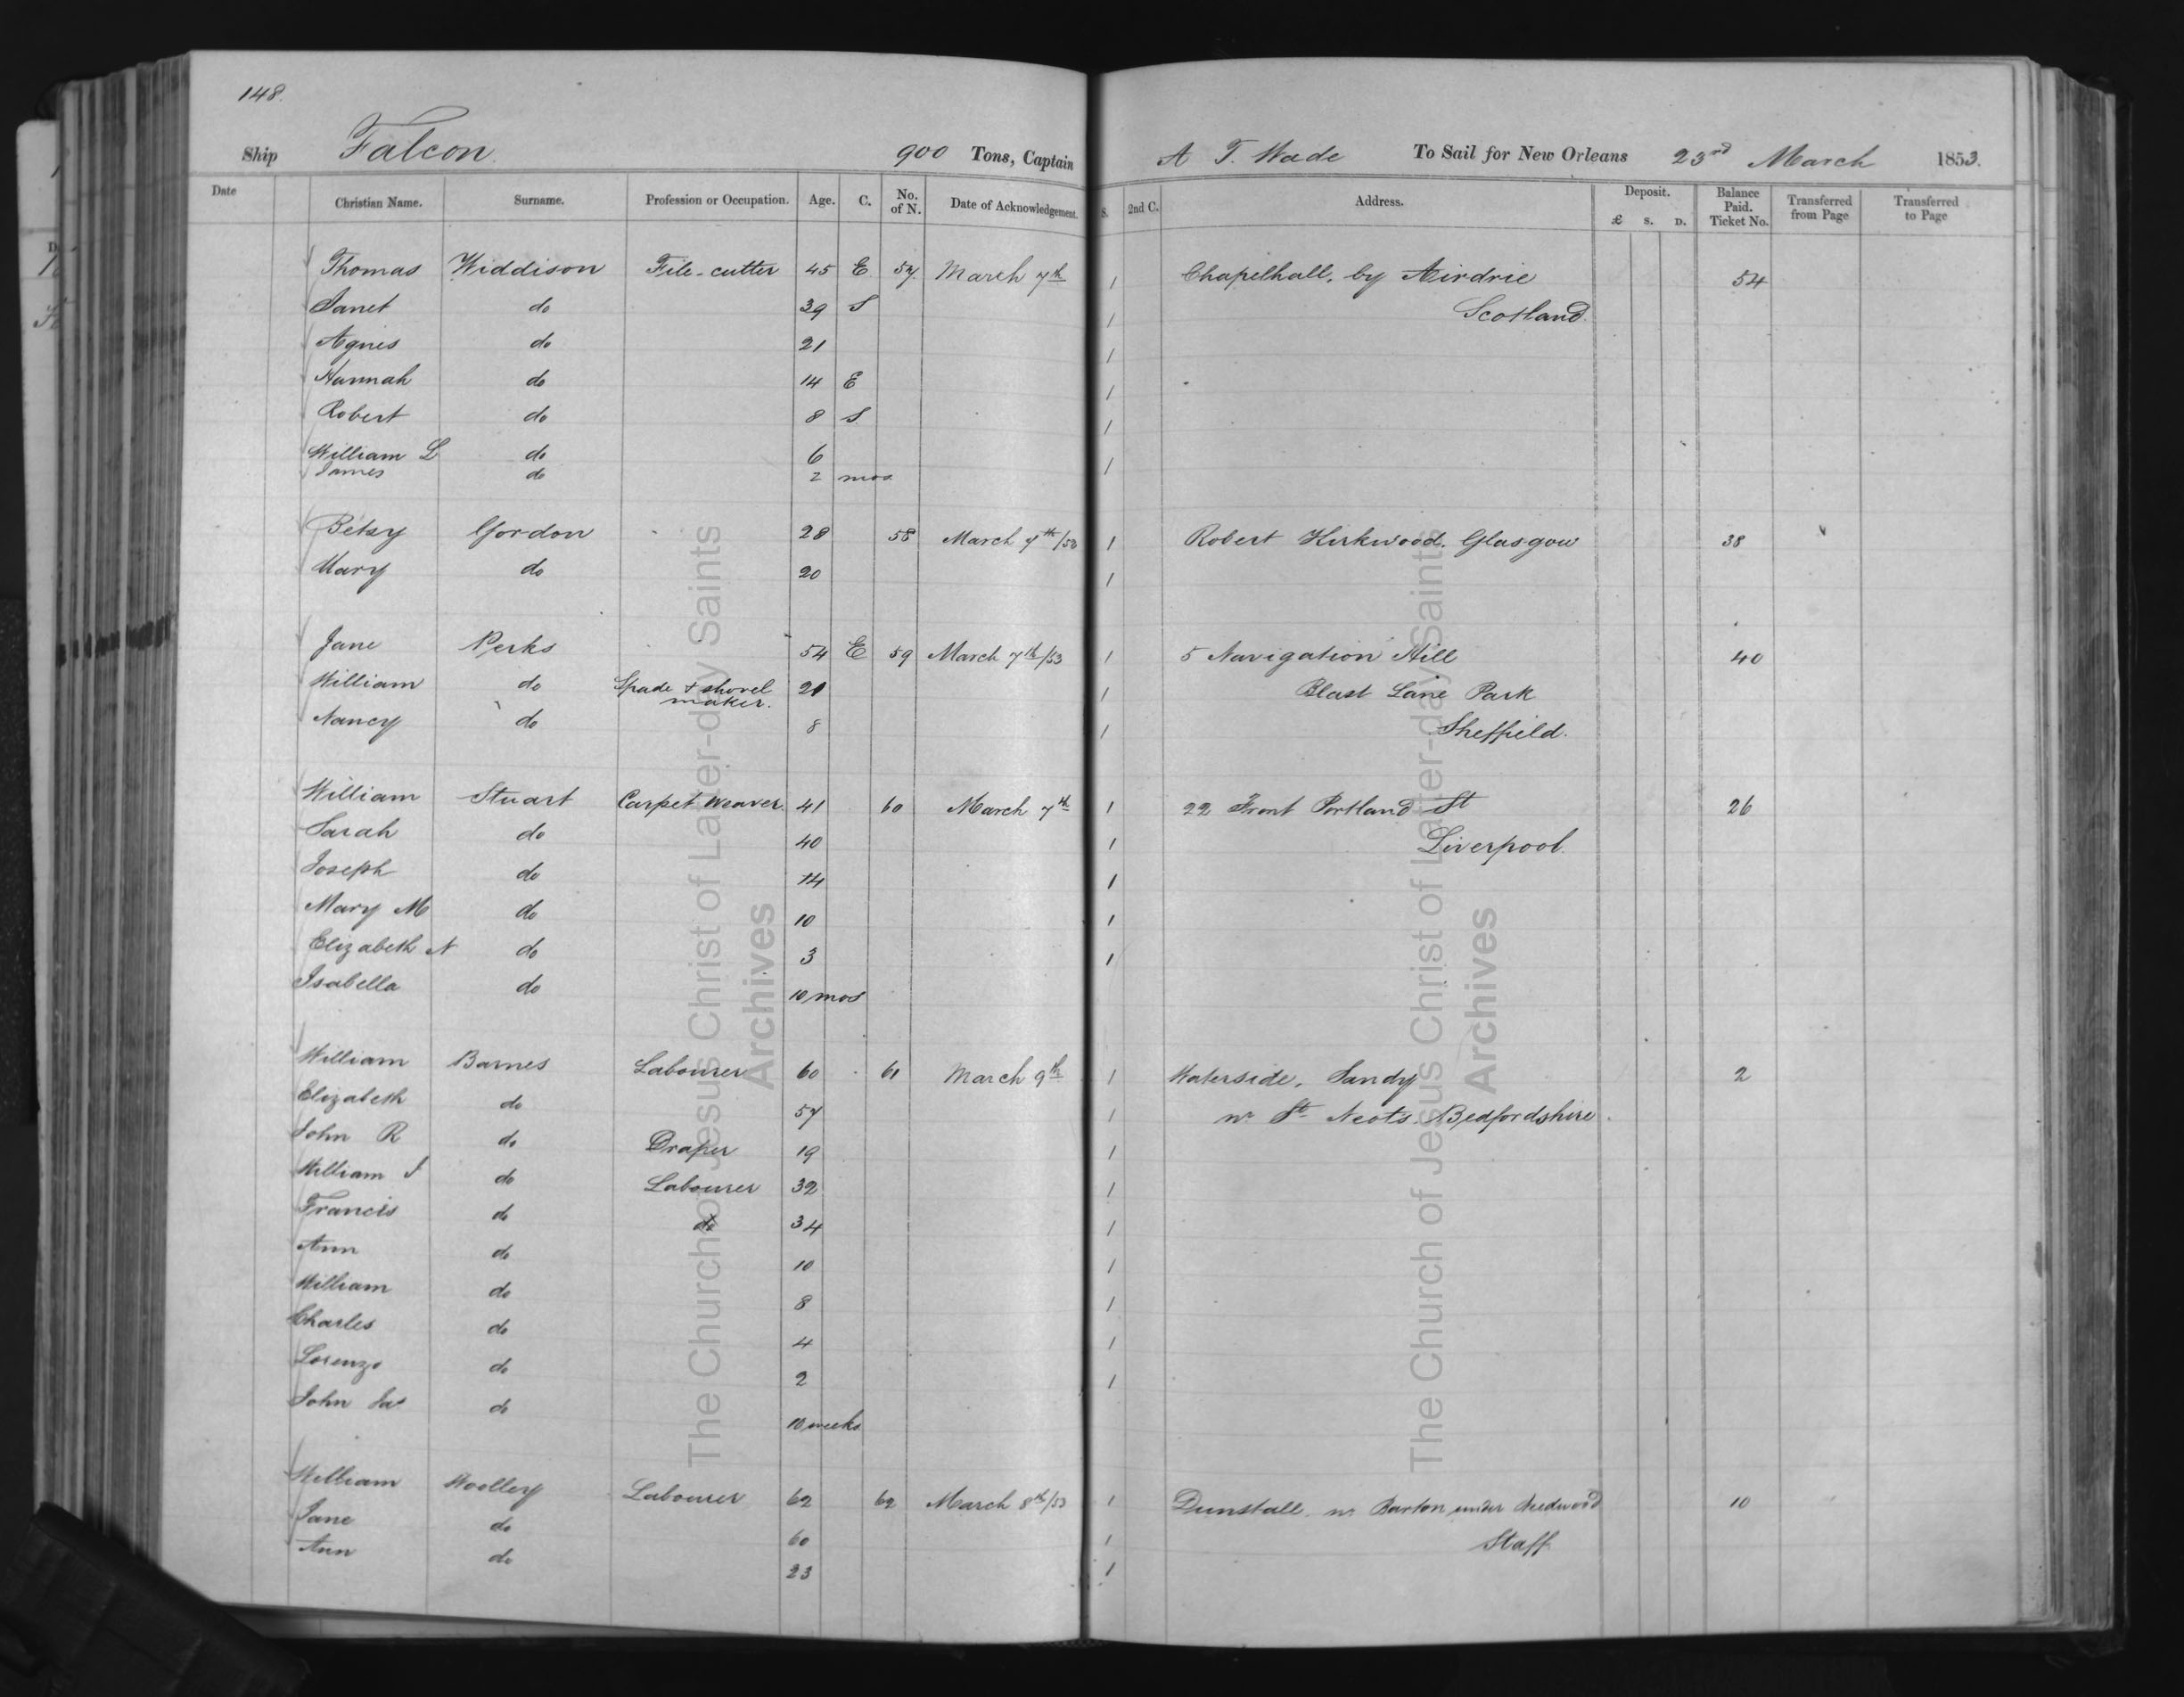 148.
Ship Falcon 900 Tons, Captain A T. Wade To Sail for New Orleans 23rd March 1853.
Date Christian Name. Surname. Profession or Occupation. Age. C. No. of N. Date of Acknowledgement. S. 2nd C. Address. Deposit. £ s. D. Balance Paid. Ticket No. Transferred from Page Transferred to Page
Thomas Widdison File-cutter 45 E 57. March 7th 1 Chapelhall, by Airdrie 54
Janet do 39 S 1 Scotland.
Agnes do 21 1
Hannah do 14 E 1
Robert do 8 S 1
William L do 6 1
James do 2 mos
Betsy Gordon 28 58 March 7th/53 1 Robert Kirkwood. Glasgow 38
Mary do 20 1
Jane Perks 54 E 59 March 7th/53 1 5 Navigation Hill 40
William do Spade & shovel maker. 21 1 Blast Lane Park
Nancy do 8 1 Sheffield.
William Stuart Carpet Weaver 41 60 March 7th 1 22 Front Portland St 26
Sarah do 40 1 Liverpool.
Joseph do 14 1
Mary M do 10 1
Elizabeth N do 3 1
Isabella do 10 mos
William Barnes Labourer 60 61 March 9th 1 Waterside, Sandy 2
Elizabeth do 57 1 nr St Neots. Bedfordshire.
John R do Draper 19 1
William J do Labourer 32 1
Francis do do 34 1
Ann do 10 1
William do 8 1
Charles do 4 1
Lorenzo do 2 1
John Jas do 10 weeks
William Woolley Labourer 62 62 March 8th/53 1 Dunstall nr Barton under Needwood 10
Jane do 60 1 Staff.
Ann do 23 1
The Church of Jesus Christ of Latter-day Saints
Archives
The Church of Jesus Christ of Latter-day Saints
Archives